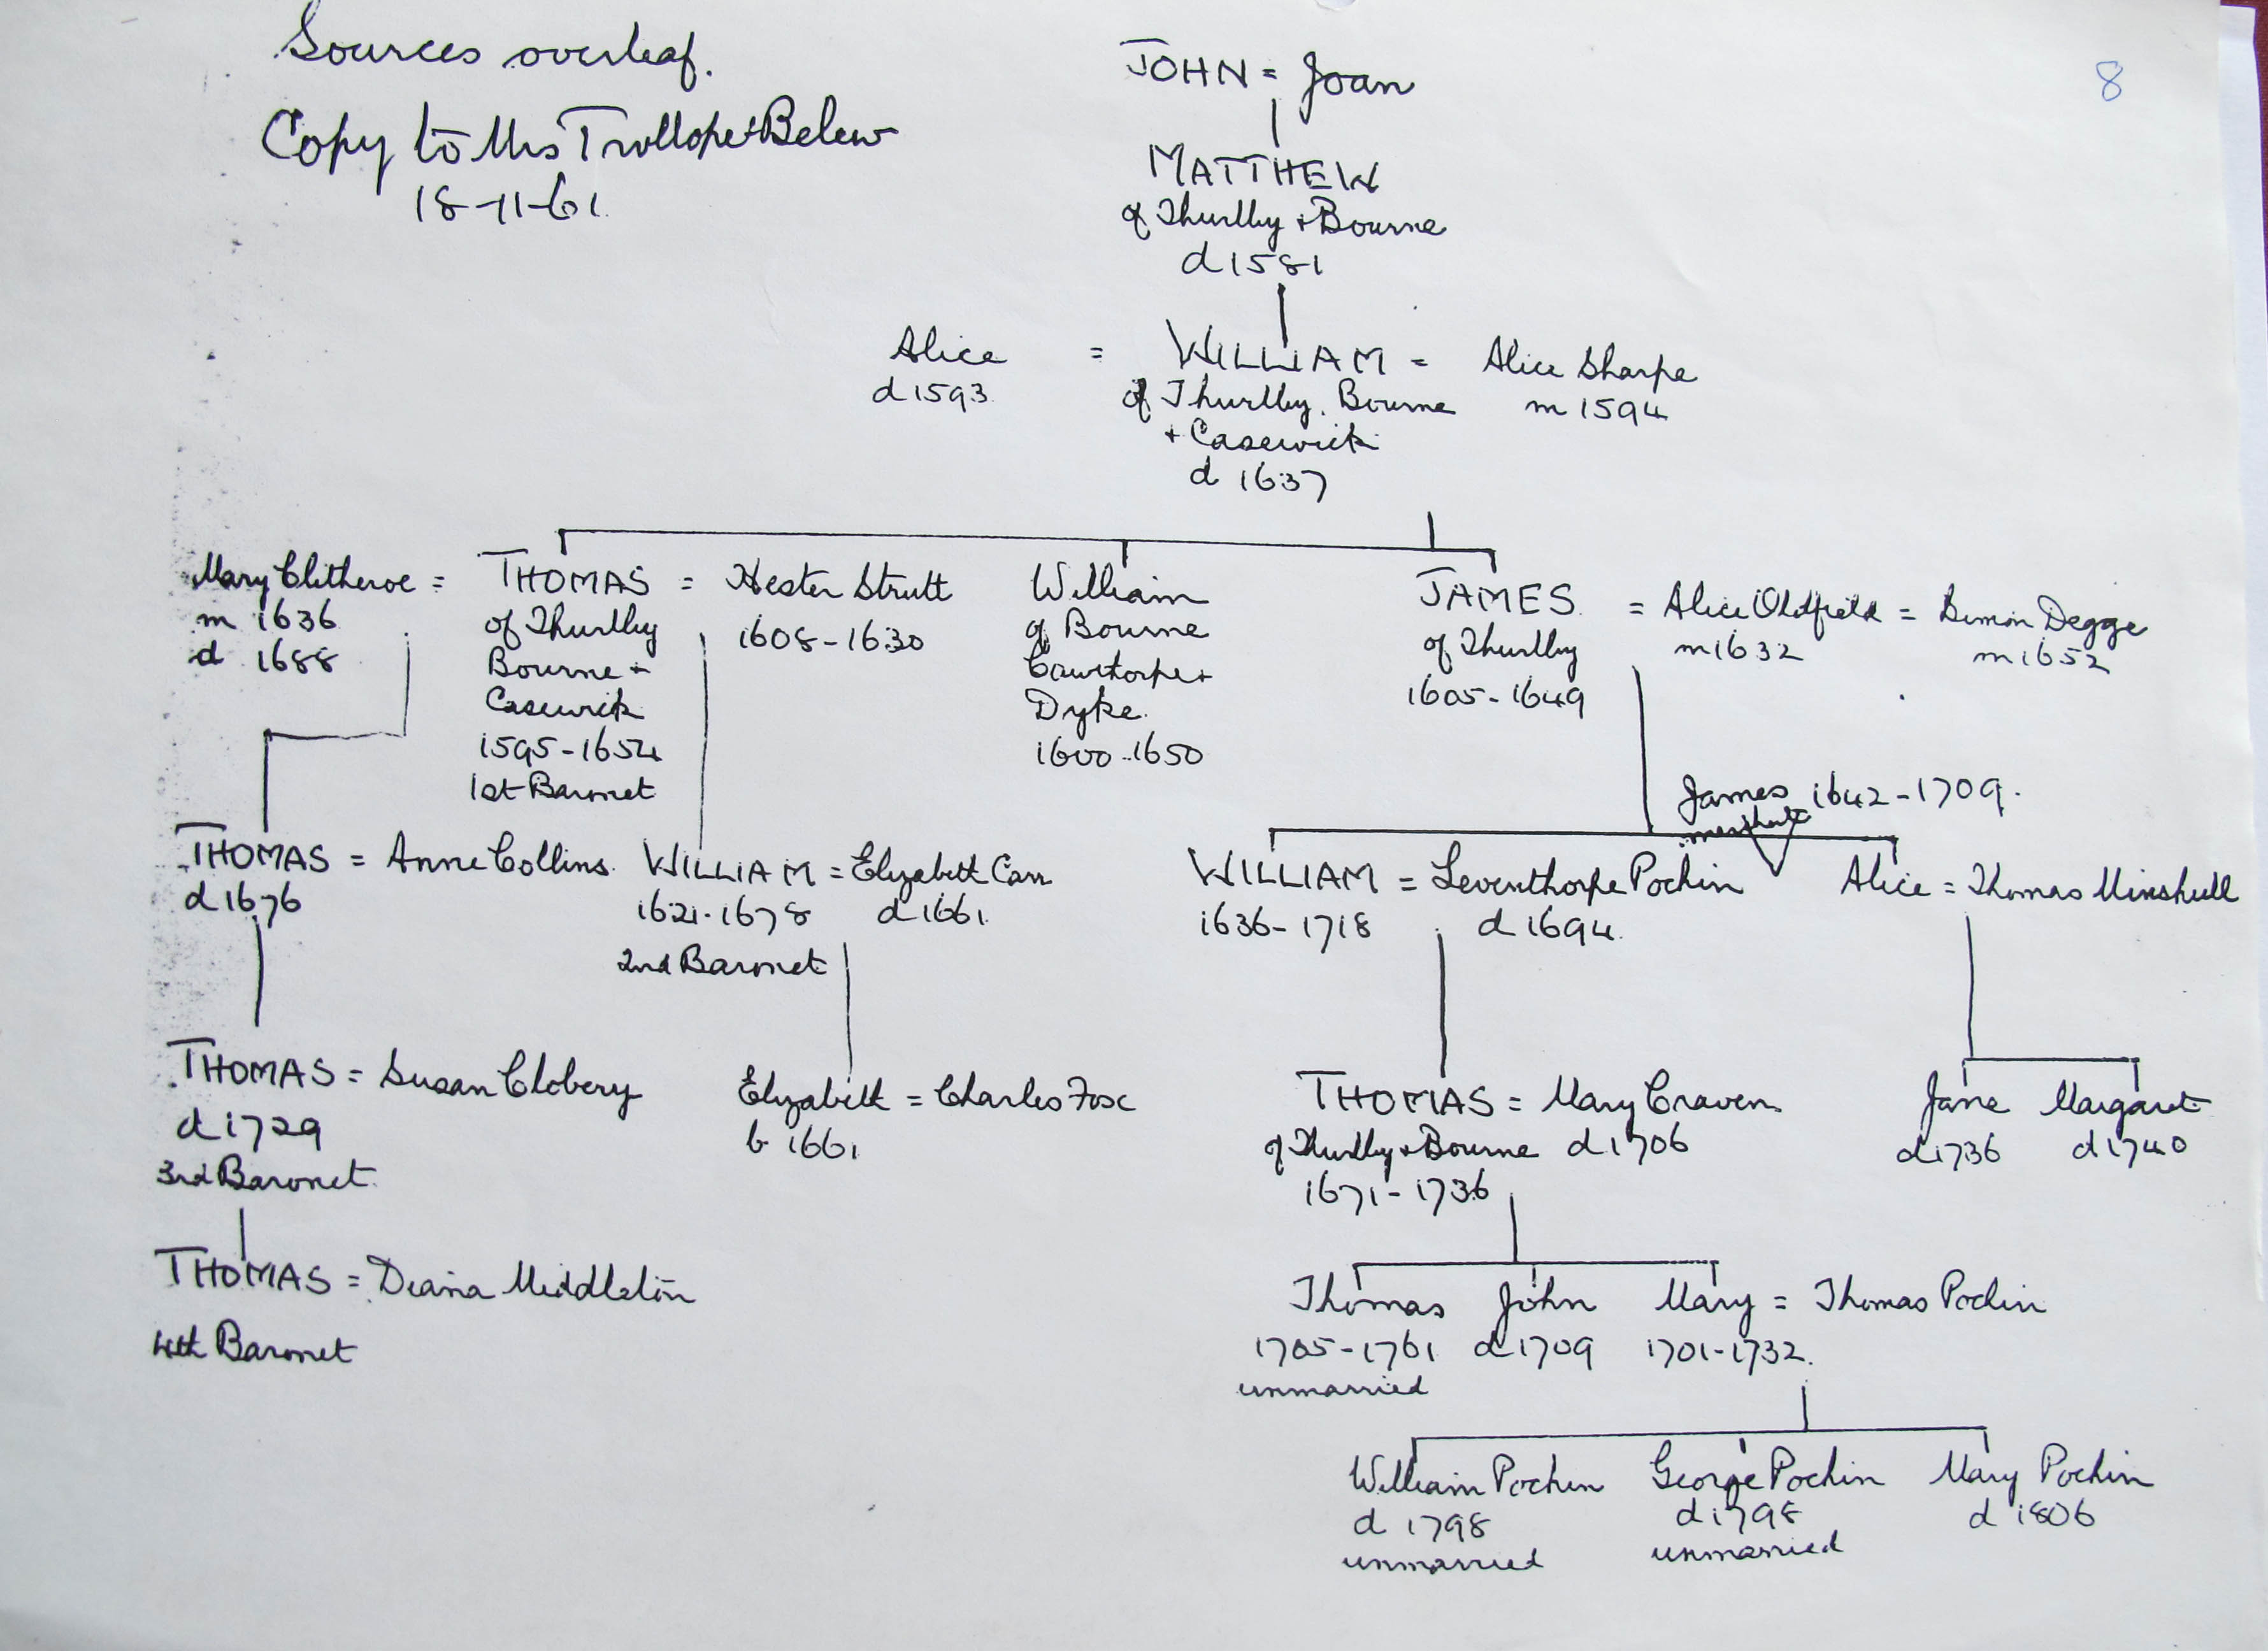 Sources overleaf.
Copy to Mrs Trollope+Belew
18-11-61.
8
JOHN = Joan
MATTHEW
of Thurlby + Bourne
d 1581
Alice = WILLIAM = Alice Sharpe
d 1593 of Thurlby, Bourne m 1594
+ Casewick
d 1637
Mary Clitheroe = THOMAS = Hester Strutt William JAMES = Alice Oldfield = Simon Degge
m 1636 of Thurlby 1608-1630 of Bourne of Thurlby m 1632 m 1652
d 1688 Bourne + Cawthorpe + 1605-1649
Casewick Dyke.
1595-1654 1600-1650
1st Baronet
James 1642-1709.
THOMAS = Anne Collins. WILLIAM = Elizabeth Carr WILLIAM = Leventhorpe Pochin Alice = Thomas Minshull
d 1676 1621-1678 d 1661. 1636-1718 d 1694.
2nd Baronet
THOMAS = Susan Clobery Elizabeth = Charles Fox THOMAS = Mary Craven Jane Margaret
d 1729 b 1661 of Thurlby + Bourne d 1706 d 1736 d 1740
3rd Baronet. 1671-1736
THOMAS = Diana Middleton Thomas John Mary = Thomas Pochin
4th Baronet 1705-1761 d 1709 1701-1732.
unmarried
William Pochin George Pochin Mary Pochin
d 1798 d 1798 d 1806
unmarried unmarried